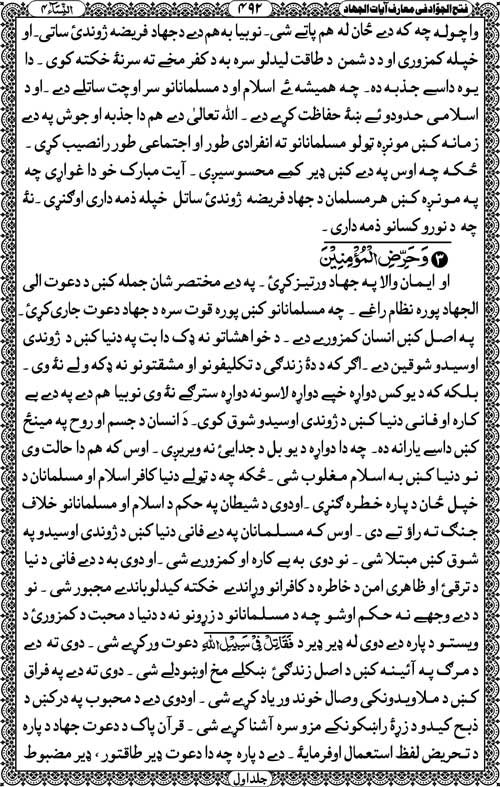 فتح الجوّاد فی معارف آیات الجهاد ۴۹۲ النِّسَآء ۴
واچوله چه که دے ځان له هم پاتے شی۔ نوبیا به هم دے د جهاد فریضه ژوندیٔ ساتی۔ او
خپله کمزوری او د دشمن د طاقت لیدلو سره به د کفر مخے ته سر نهٔ خکته کوی۔ دا
یوه داسے جذبه ده۔ چه همیشه ئے اسلام او د مسلمانانو سر اوچت ساتلے دے۔ او د
اسلامی حدودو ئے ښهٔ حفاظت کړے دے۔ الله تعالیٰ دے هم دا جذبه او جوش په دے
زمانه کښ مونږه ټولو مسلمانانو ته انفرادی طور او اجتماعی طور رانصیب کړی۔
ځکه چه اوس په دے کښ ډیر کمے محسوسیږی۔ آیت مبارک خو دا غواړی چه
په مونږه کښ هر مسلمان د جهاد فریضه ژوندیٔ ساتل خپله ذمه داری اوګنړی۔ نهٔ
چه د نورو کسانو ذمه داری۔
۳ وَحَرِّضِ الْمُؤْمِنِیْنَ
او ایمان والا په جهاد ورتیز کړئ۔ په دے مختصر شان جمله کښ د دعوت الی
الجهاد پوره نظام راغے۔ چه مسلمانانو کښ پوره قوت سره د جهاد دعوت جاری کړئ۔
په اصل کښ انسان کمزورے دے۔ د خواهشاتو نه ډک دا بت په دنیا کښ د ژوندی
اوسیدو شوقین دے۔ اګر که د دهٔ ژندګی د تکلیفونو او مشقتونو نه ډکه ولے نهٔ وی۔
بلکه که د یو کس دواړه خپے دواړه لاسونه دواړه سترګے نهٔ وی نوبیا هم دے په دے بے
کاره او فانی دنیا کښ د ژوندی اوسیدو شوق کوی۔ دَ انسان د جسم او روح په مینځ
کښ داسے یارانه ده۔ چه دا دواړه د یو بل د جدایٔ نه ویریږی۔ اوس که هم دا حالت وی
نو دنیا کښ به اسلام مغلوب شی۔ ځکه چه د ټولے دنیا کافر اسلام او مسلمانان د
خپل ځان د پاره خطره ګنړی۔ او دوی د شیطان په حکم د اسلام او مسلمانانو خلاف
جنګ ته راؤتے دی۔ اوس که مسلمانان په دے فانی دنیا کښ د ژوندی اوسیدو په
شوق کښ مبتلا شی۔ نو دوی به بے کاره او کمزورے شی۔ او دوی به د دے فانی دنیا
د ترقیٔ او ظاهری امن د خاطره د کافرانو وړاندے خکته کیدلو باندے مجبور شی۔ نو
د دے وجهے نه حکم اوشو چه د مسلمانانو د زړونو نه د دنیا د محبت د کمزوریٔ د
ویستو د پاره دے دوی له ډیر ډیر د فَقَاتِلْ فِیْ سَبِیْلِ اللهِ دعوت ورکړے شی۔ دوی ته دے
د مرګ په آئینه کښ د اصل زندګیٔ ښکلے مخ اوښودلے شی۔ دوی ته دے په فراق
کښ د ملاویدونکی وصال خوند وریاد کړے شی۔ او دوی دے د محبوب په درکښ د
ذبح کیدو د زړهٔ راښکونکے مزو سره آشنا کړے شی۔ قرآن پاک د دعوت جهاد د پاره
د تحریض لفظ استعمال اوفرمایهٔ۔ د دے د پاره چه دا دعوت ډیر طاقتور، ډیر مضبوط
جلد اول